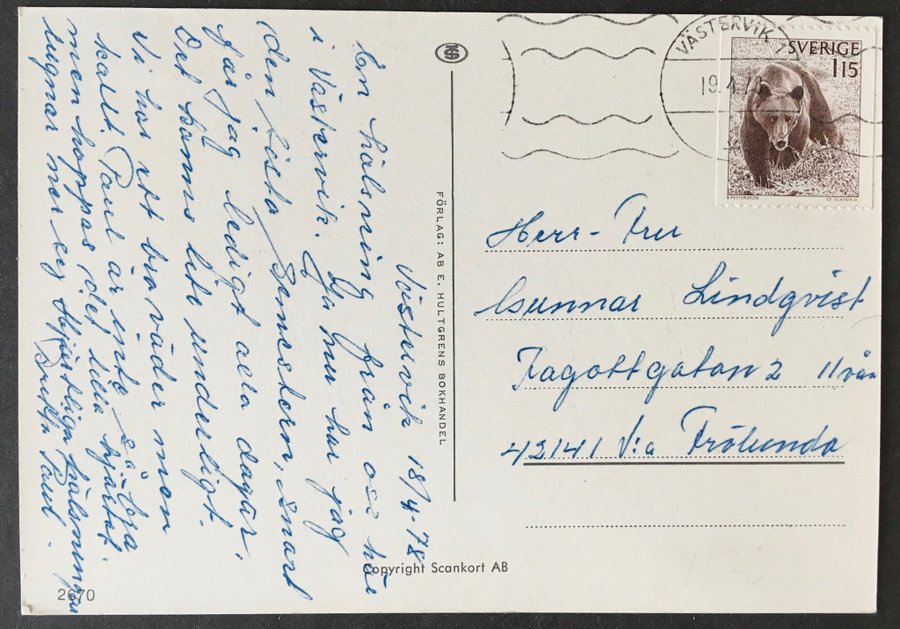 Västervik 18/4-78
En hälsning från oss här
i Västervik. Ja nu har jag
den sista semestern, snart
får jag ledigt alla dagar.
Det känns lite underligt.
Vi har ett bra väder men
kallt. Paul är inte
men hoppas det lilla hjärtat
lugnar ner sig Hjärtliga hälsningar
Britta Paul.
FÖRLAG: AB E. HULTGRENS BOKHANDEL
Copyright Scankort AB
2670
VÄSTERVIK
19.4.78
SVERIGE
115
Herr-Fru
Gunnar Lindqvist
Fagottgatan 2 11 vån
42141 V:a Frölunda